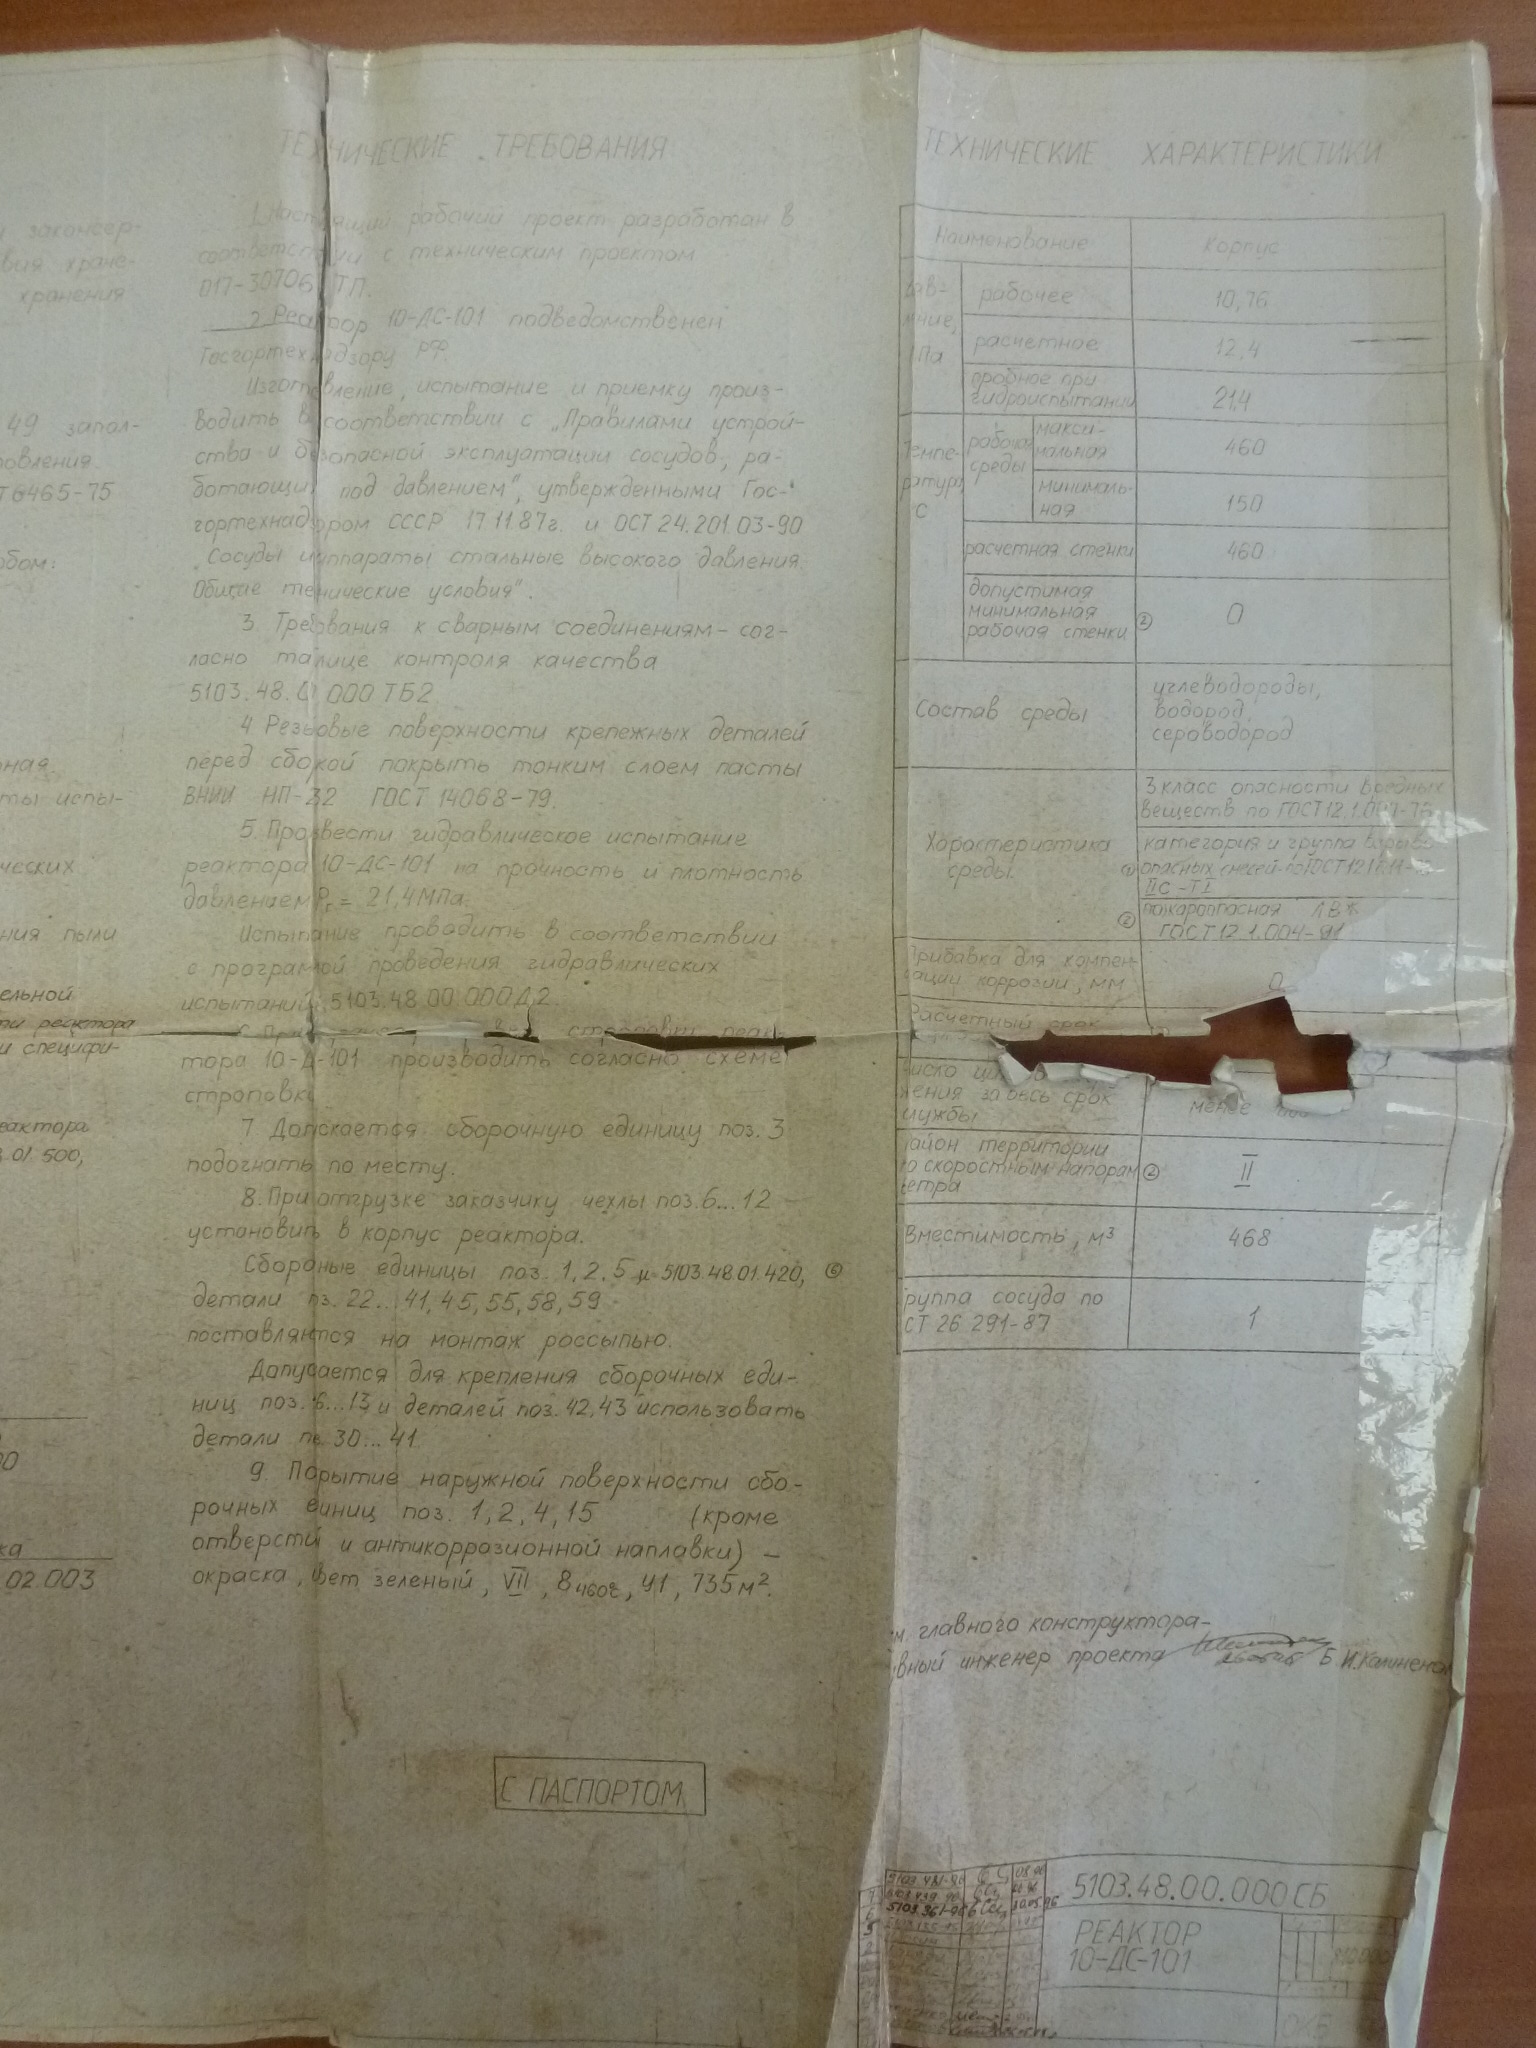 и законсер-
вия хране-
хранения
49 запол-
товления.
Т 6465-75
обом:
ная.
ты испы-
ческих
ния пыли
ельной
ти реактора
и специфи-
еактора
.01.500,
00
ка
02.003
ТЕХНИЧЕСКИЕ ТРЕБОВАНИЯ
1. Настоящий рабочий проект разработан в
соответствии с техническим проектом
017-30706 ТП.
2. Реактор 10-ДС-101 подведомственен
Госгортехнадзору РФ.
Изготовление, испытание и приемку произ-
водить в соответствии с „Правилами устрой-
ства и безопасной эксплуатации сосудов, ра-
ботающих под давлением", утвержденными Гос-
гортехнадзором СССР 17.11.87г. и ОСТ 24.201.03-90
„Сосуды и аппараты стальные высокого давления.
Общие технические условия".
3. Требования к сварным соединениям - сог-
ласно таблице контроля качества
5103.48.0 000 ТБ2.
4. Резьбовые поверхности крепежных деталей
перед сборкой покрыть тонким слоем пасты
ВНИИ НП-232 ГОСТ 14068-79.
5. Произвести гидравлическое испытание
реактора 10-ДС-101 на прочность и плотность
давлением Рг = 21,4 МПа.
Испытание проводить в соответствии
с программой проведения гидравлических
испытаний 5103.48.00.000Д2.
6. При строповки реак-
тора 10-ДС-101 производить согласно схеме
строповки.
7. Допускается сборочную единицу поз. 3
подогнать по месту.
8. При отгрузке заказчику чехлы поз. 6...12
установить в корпус реактора.
Сборочные единицы поз. 1, 2, 5 и 5103.48.01.420, ⑥
детали поз. 22...41, 45, 55, 58, 59
поставляются на монтаж россыпью.
Допускается для крепления сборочных еди-
ниц поз. 6...13 и деталей поз. 42, 43 использовать
детали поз. 30...41.
9. Покрытие наружной поверхности сбо-
рочных единиц поз. 1, 2, 4, 15 (кроме
отверстий и антикоррозионной наплавки) -
окраска, цвет зеленый, VII, 8 460г, У1, 735 м².
С ПАСПОРТОМ
ТЕХНИЧЕСКИЕ ХАРАКТЕРИСТИКИ
Наименование Корпус
Давление, МПа
рабочее 10,76
расчетное 12,4
пробное при
гидроиспытании 21,4
Температура, °С
рабочая среды
макси-
мальная 460
минималь-
ная 150
расчетная стенки 460
допустимая
минимальная
рабочая стенки ② 0
Состав среды
углеводороды,
водород,
сероводород
Характеристика
среды.
3 класс опасности вредных
веществ по ГОСТ 12.1.007-76
категория и группа взрыво-
① опасных смесей по ГОСТ 12.1.011-
IIС -Т1
② пожароопасная ЛВЖ
ГОСТ 12.1.004-91
Прибавка для компен-
сации коррозии, мм 0
Расчетный срок
Число
жения за весь срок
службы менее
Район территории
по скоростным напорам ② II
ветра
Вместимость, м³ 468
Группа сосуда по
ОСТ 26 291-87 1
Зам. главного конструктора-
главный инженер проекта Б.И.Калинен
5103.481-96 08.96
5103.439.96
5103.361-96 30.05.96
5103.48.00.000СБ
РЕАКТОР
10-ДС-101
ОКБ